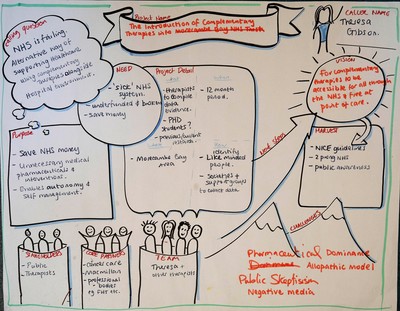 Project Name
The Introduction of Complimentary
Therapies into Morecambe Bay NHS Trust
CALLER NAME
Theresa
Gibson.
Calling Question
NHS is failing.
Alternative way of
supporting Healthcare
using complimentary
therapies alongside
Hospital environment.
NEED
- 'Sick' NHS
system.
- underfunded &
- save money
Project Detail
- therapists
to compile
data
evidence.
- PHD
students?
- previous/current
research
- 12 month
period.
- Morecambe Bay
area
- identify
Like minded
people.
- societies &
support groups
to collect data.
VISION
For complimentary
therapies to be
accessible for all through
the NHS & free at
point of care.
Purpose
- Save NHS money
- Unnecessary medical
pharmaceuticals &
interventions.
- Enables autonomy &
self management.
Next Steps
HARVEST
- NICE guidelines
- 2 prong NHS
- public awareness
STAKEHOLDERS
- Public
- Therapists
CORE PARTNERS
- cancer care
- Macmillan
- professional
bodies
eg FHT etc.
TEAM
Theresa +
other therapists
CHALLENGES
Pharmaceutical Dominance
Allopathic model
Public Skeptisism
Negative media